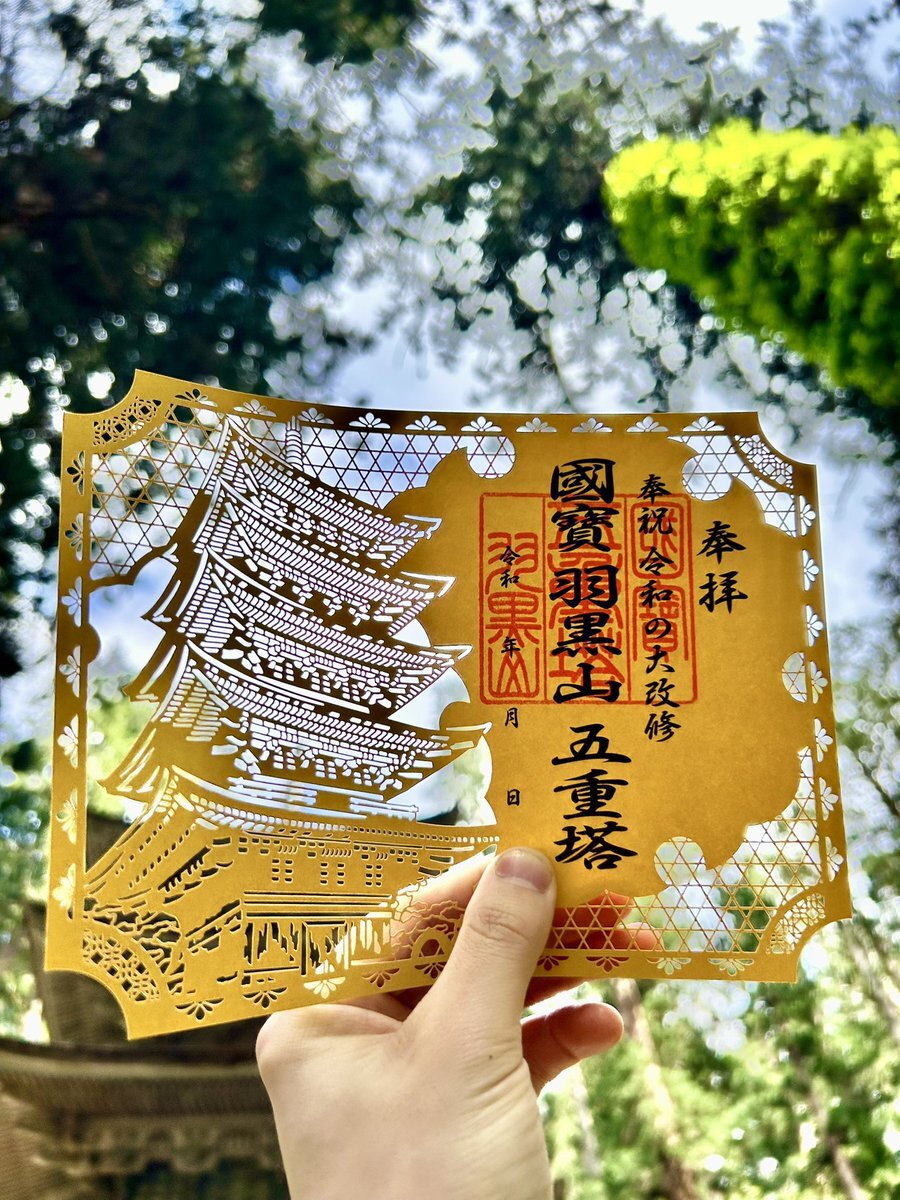 奉拝
奉祝令和の大改修
國寶 羽黒山 五重塔
令和 年 月 日
羽黒山